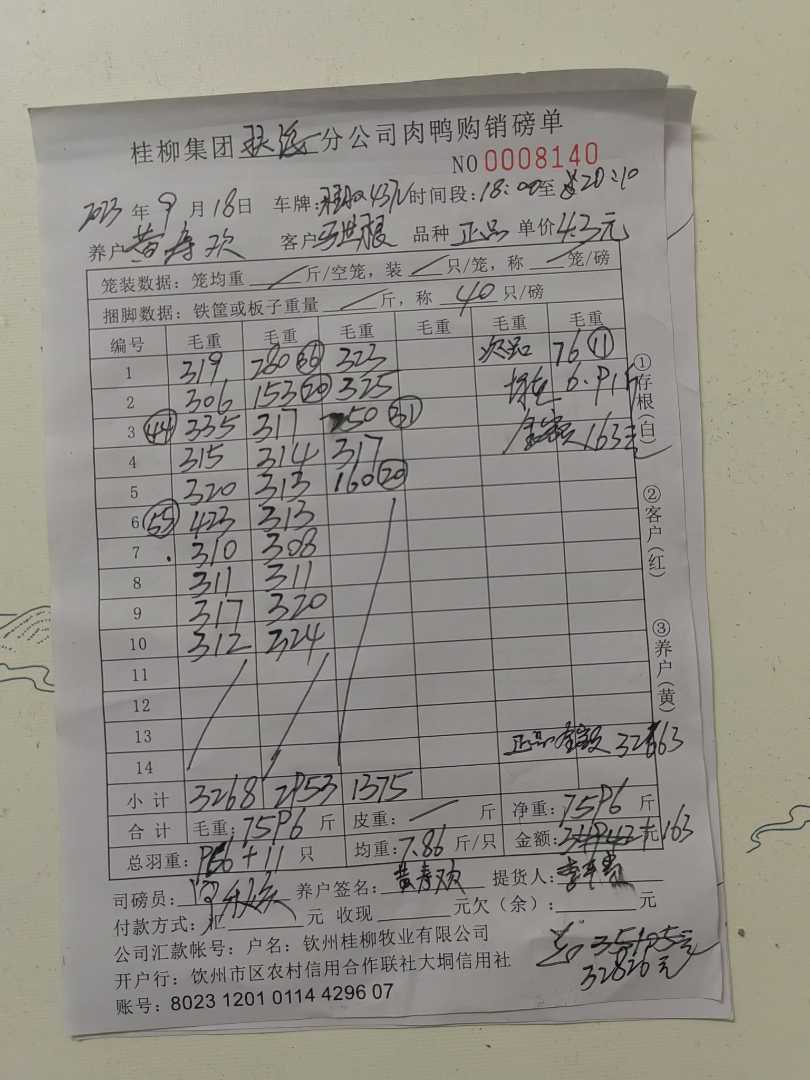 桂柳集团 分公司肉鸭购销磅单
NO 0008140
2023 年 9 月 18 日 车牌: 时间段: 18:00 至 20:10
养户 黄寿欢 客户 品种 正品 单价 4.3元
笼装数据: 笼均重 斤/空笼, 装 只/笼, 称 笼/磅
捆脚数据: 铁筐或板子重量 斤, 称 40 只/磅
编号 毛重 毛重 毛重 毛重 毛重 毛重
1 319 280 36 323 次品 76 11
2 306 153 20 325
3 44 335 317 250 31 金额 163元
4 315 314 317
5 320 313 160 20
6 55 423 313
7 310 308
8 311 311
9 317 320
10 312 324
11
12
13 正品金额 32663
14
小计 3268 2953 1375
合计 毛重: 7596 斤 皮重: 斤 净重: 7596 斤
总羽重: 966+11 只 均重: 7.86 斤/只 金额: 元 163
司磅员: 养户签名: 黄寿欢 提货人:
付款方式: 汇 元 收现 元欠(余): 元
公司汇款帐号: 户名: 钦州桂柳牧业有限公司
开户行: 钦州市区农村信用合作联社大垌信用社
32826元
账号: 8023 1201 0114 4296 07
①存根(白)
②客户(红)
③养户(黄)